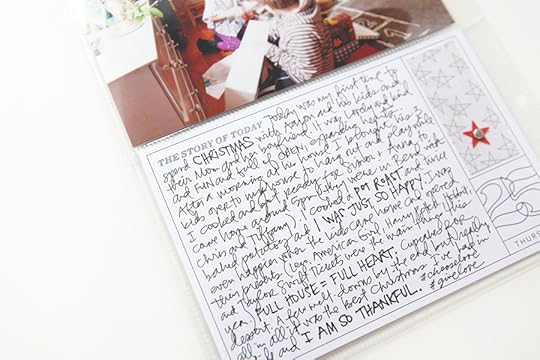 THE STORY OF TODAY
Today was my first time to
spend CHRISTMAS with Aaron and his kids and
their Mom and her boyfriend. It was Lovely and kind
and FUN and full of JOY!
After a morning at his house I brought the
kids over to my house to hang out and play while
I cooked and got ready for dinner.
cave hope of your
Chris and Tiffany). I cooked a POT ROAST and
baked potatoes and I WAS JUST SO HAPPY. I was
even happier when the kids came here and opened
their presents (Lego, American Girl, Harry Potter
and Taylor Swift tickets were the main hits this
year). FULL HOUSE = FULL HEART. Cupcakes for
dessert. A few melt-downs by the end but really
all in all it was the best Christmas I've had in
I AM SO THANKFUL. #chooselove
#givelove
25
THURS